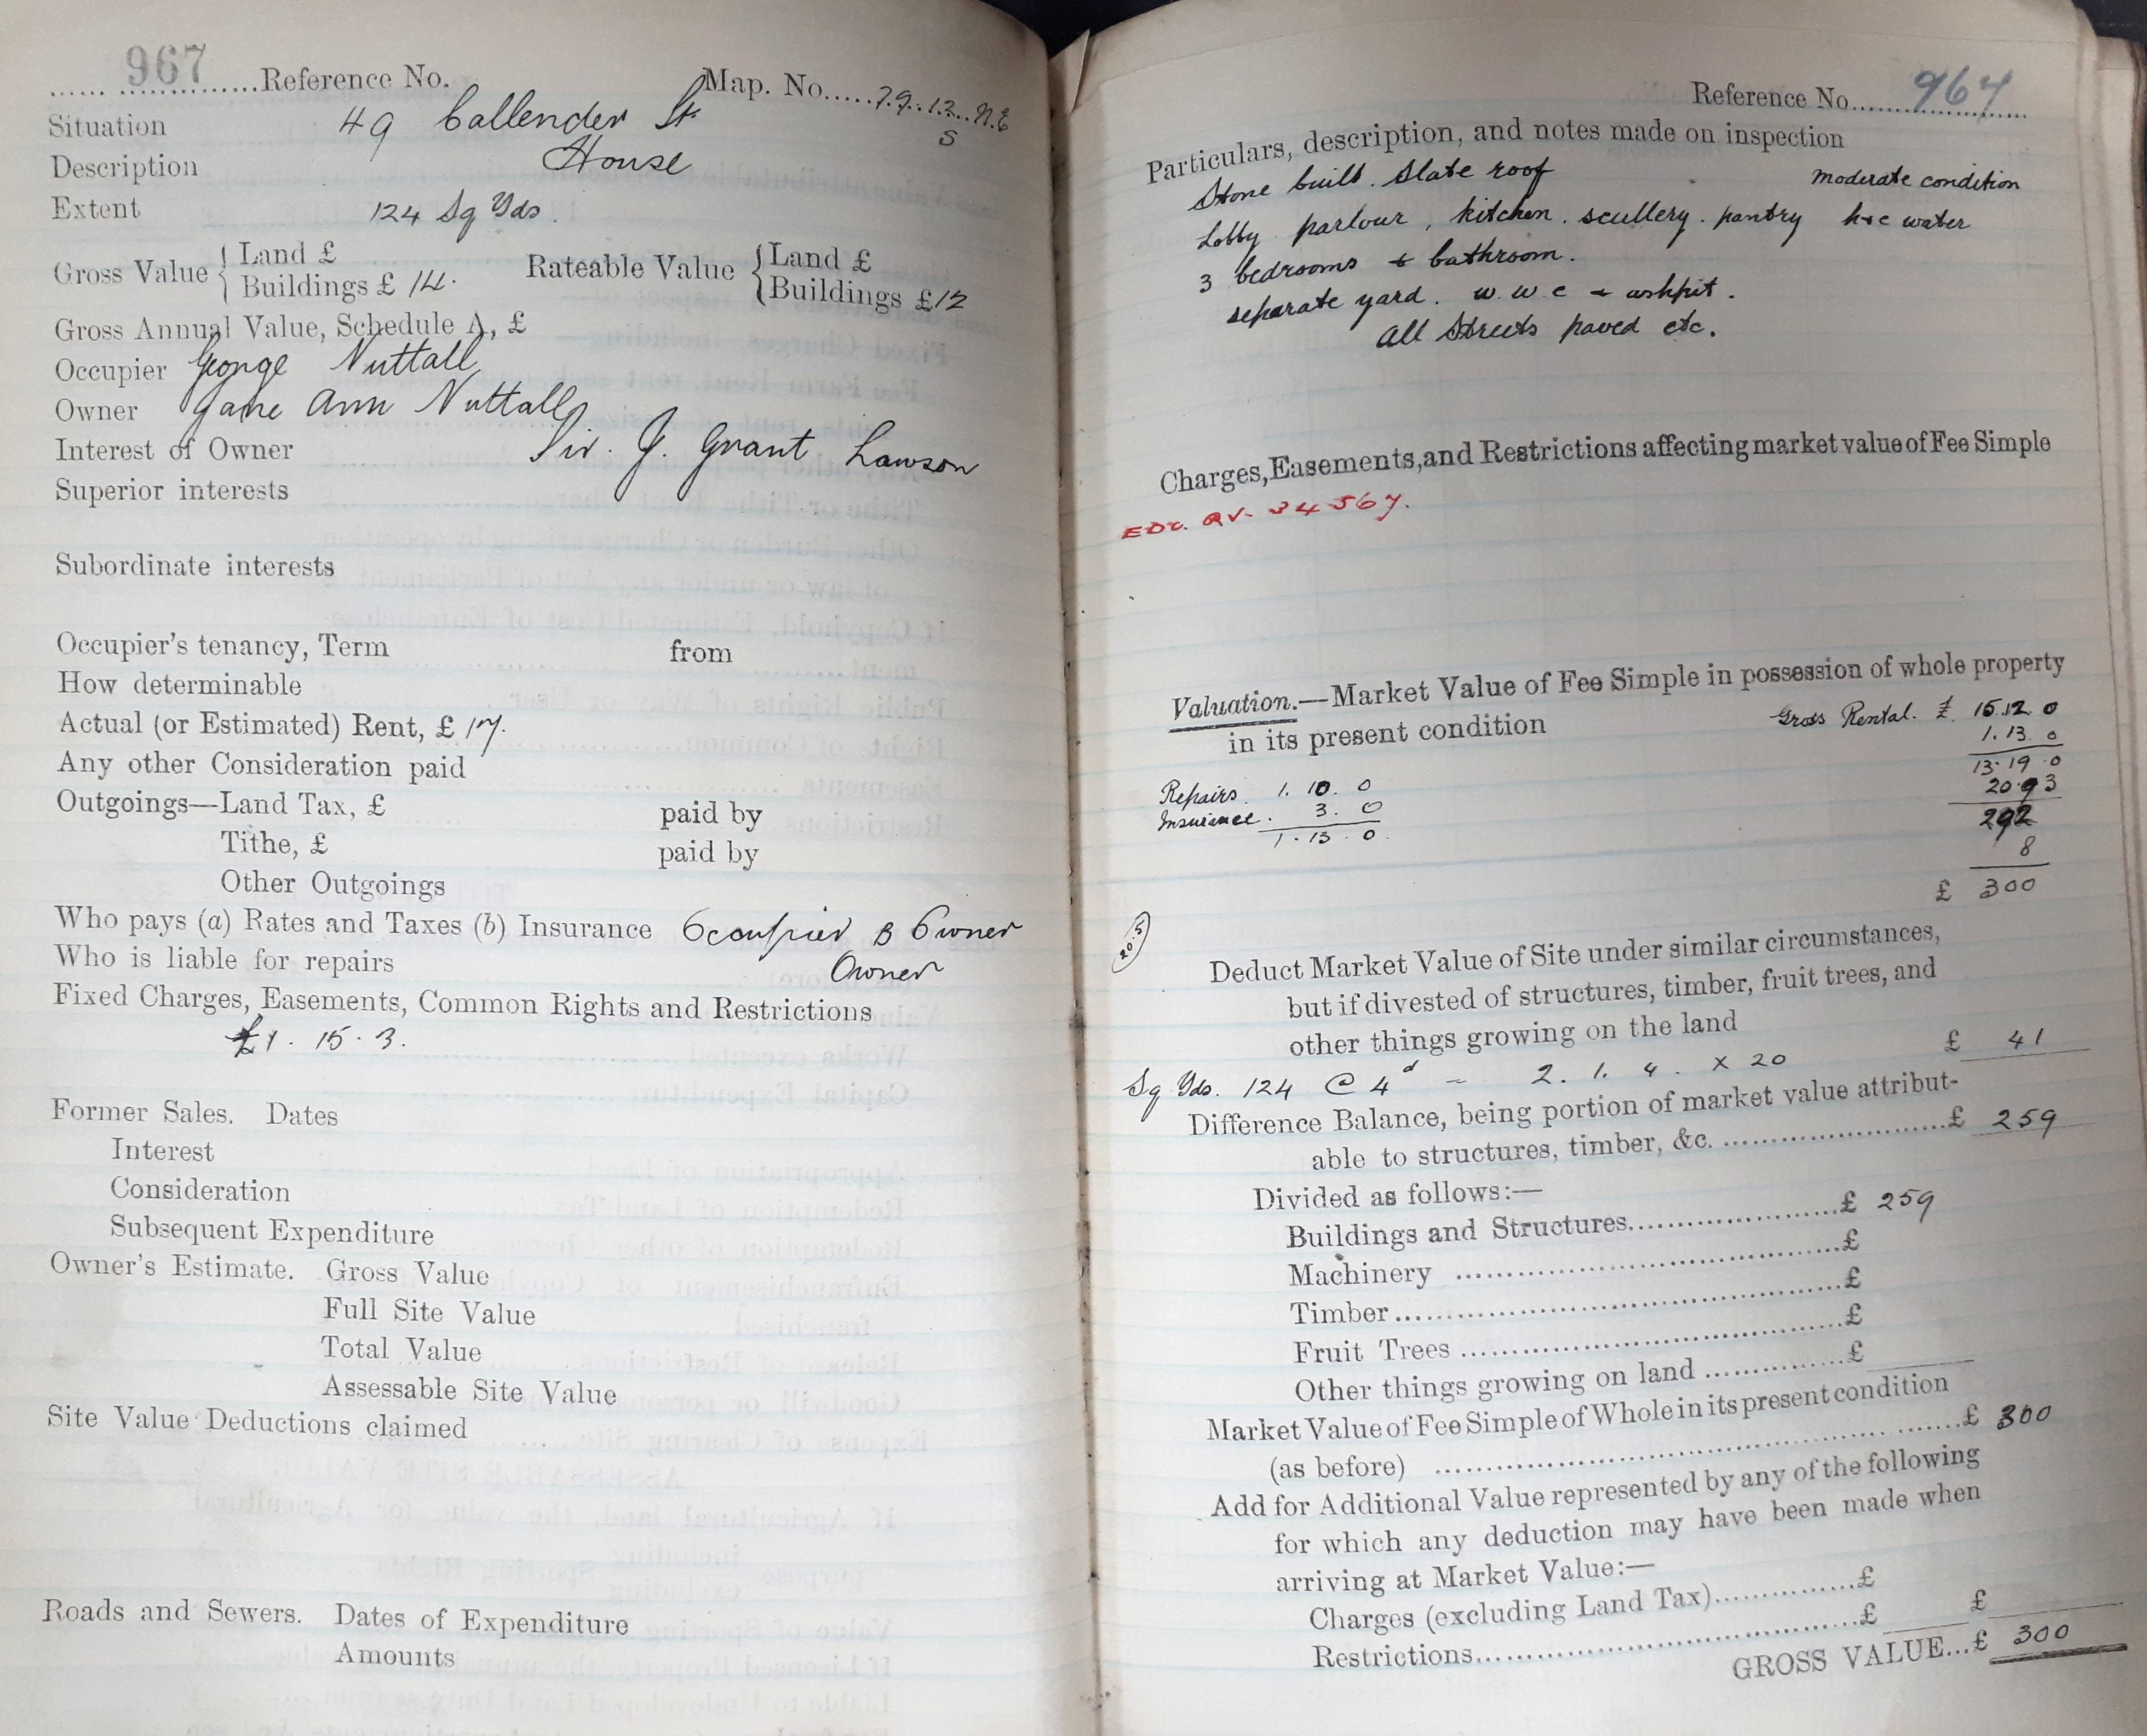 967 Reference No. Map. No. 79.12 N.E
S
Situation 49 Callender St.
Description House
Extent 124 Sq Yds.
Gross Value { Land £
Buildings £ 14. Rateable Value { Land £
Buildings £12
Gross Annual Value, Schedule A, £
Occupier George Nuttall
Owner Jane Ann Nuttall
Interest of Owner Sir. J. Grant Lawson
Superior interests
Subordinate interests
Occupier's tenancy, Term from
How determinable
Actual (or Estimated) Rent, £ 17.
Any other Consideration paid
Outgoings—Land Tax, £ paid by
Tithe, £ paid by
Other Outgoings
Who pays (a) Rates and Taxes (b) Insurance Occupier B Owner
Who is liable for repairs Owner
Fixed Charges, Easements, Common Rights and Restrictions
£1. 15. 3.
Former Sales. Dates
Interest
Consideration
Subsequent Expenditure
Owner's Estimate. Gross Value
Full Site Value
Total Value
Assessable Site Value
Site Value Deductions claimed
Roads and Sewers. Dates of Expenditure
Amounts
Reference No. 967
Particulars, description, and notes made on inspection
Stone built. Slate roof moderate condition
Lobby parlour, kitchen. scullery. pantry h & c water
3 bedrooms & bathroom.
separate yard. w. w. c & ashpit.
All Streets paved etc.
Charges, Easements, and Restrictions affecting market value of Fee Simple
EDr. RV. 34567.
Valuation.—Market Value of Fee Simple in possession of whole property
in its present condition Gross Rental. £ 15.12 0
1. 13. 0
13. 19. 0
Repairs 1. 10. 0
Insurance. 3. 0
1. 13. 0
292
8
£ 300
20.5
Deduct Market Value of Site under similar circumstances,
but if divested of structures, timber, fruit trees, and
other things growing on the land £ 41
Sq Yds. 124 @ 4d = 2. 1. 4. x 20
Difference Balance, being portion of market value attribut-
able to structures, timber, &c. £ 259
Divided as follows:—
Buildings and Structures £ 259
Machinery £
Timber £
Fruit Trees £
Other things growing on land £
Market Value of Fee Simple of Whole in its present condition
(as before) £ 300
Add for Additional Value represented by any of the following
for which any deduction may have been made when
arriving at Market Value:—
Charges (excluding Land Tax) £
Restrictions £ £
GROSS VALUE...£ 300